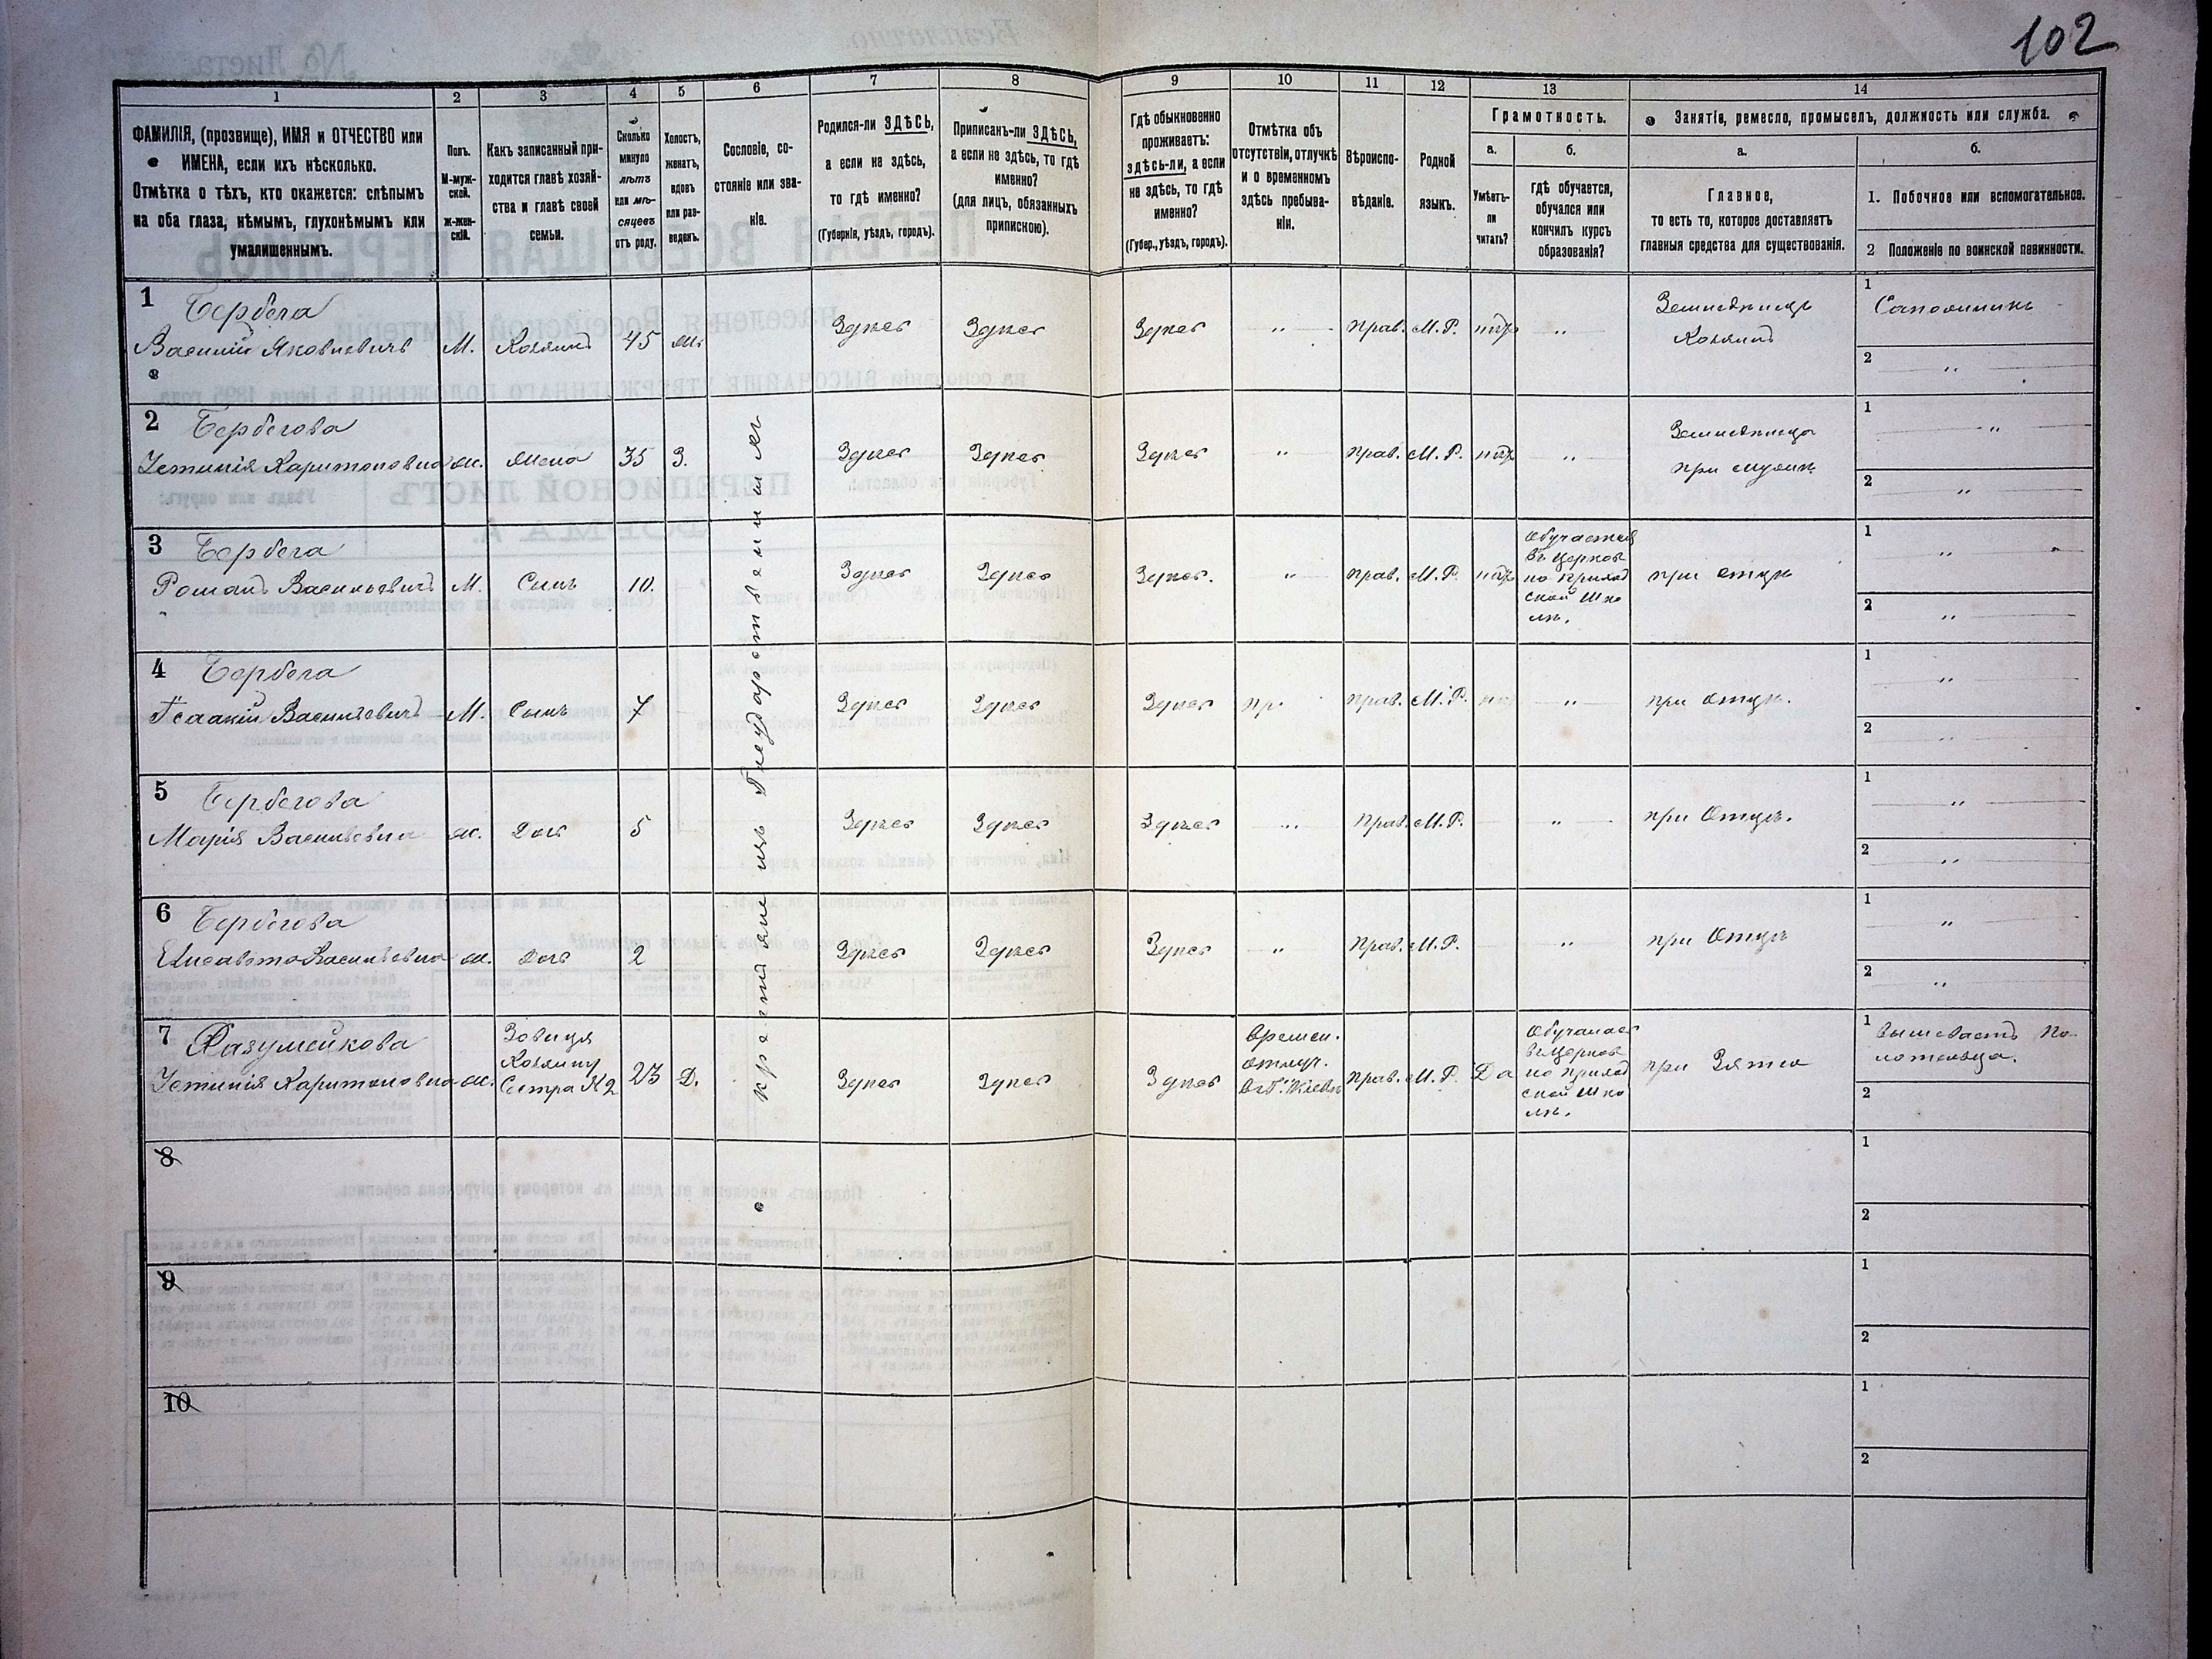 102
1 2 3 4 5 6 7 8 9 10 11 12 13 14
ФАМИЛІЯ, (прозвище), ИМЯ и ОТЧЕСТВО или
ИМЕНА, если ихъ нѣсколько.
Отмѣтка о тѣхъ, кто окажется: слѣпымъ
на оба глаза, нѣмымъ, глухонѣмымъ или
умалишеннымъ.
Полъ.
М-муж-
ской.
ж-жен-
скій.
Какъ записанный при-
ходится главѣ хозяй-
ства и главѣ своей
семьи.
Сколько
минуло
лѣтъ
или мѣ-
сяцевъ
отъ роду.
Холостъ,
женатъ,
вдовъ
или раз-
веденъ.
Сословіе, со-
стояніе или зва-
ніе.
Родился-ли ЗДѢСЬ,
а если не здѣсь,
то гдѣ именно?
(Губернія, уѣздъ, городъ).
Приписанъ-ли ЗДѢСЬ,
а если не здѣсь, то гдѣ
именно?
(для лицъ, обязанныхъ
припискою).
Гдѣ обыкновенно
проживаетъ:
здѣсь-ли, а если
не здѣсь, то гдѣ
именно?
(Губер., уѣздъ, городъ).
Отмѣтка объ
отсутствіи, отлучкѣ
и о временномъ
здѣсь пребыва-
ніи.
Вѣроиспо-
вѣданіе.
Родной
языкъ.
Грамотность.
а.
Умѣетъ-
ли
читать?
б.
гдѣ обучается,
обучался или
кончилъ курсъ
образованія?
Занятіе, ремесло, промыселъ, должность или служба.
а.
Главное,
то есть то, которое доставляетъ
главныя средства для существованія.
б.
1. Побочное или вспомогательное.
2 Положеніе по воинской повинности.
крестьяне изъ Государственныхъ
1 Бербега
Василій Яковлевичъ М. Хозяинъ 45 ж. Здѣсь Здѣсь Здѣсь " Прав. М. Р. нѣтъ "
Земледѣлецъ
Хозяинъ
1 Сапожникъ
2 "
2 Бербегова
Устинія Харитоновна ж. Жена 35 З. Здѣсь Здѣсь Здѣсь " Прав. М. Р. нѣтъ "
Земледѣлица
при мужѣ
1 "
2 "
3 Бербега
Романъ Васильевичъ М. Сынъ 10. Здѣсь Здѣсь Здѣсь. " Прав. М. Р. нѣтъ
Обучается
въ Церков
но приход
ской шко
лѣ.
при отцѣ
1 "
2 "
4 Бербега
Исаакій Васильевичъ М. Сынъ 7 Здѣсь Здѣсь Здѣсь Прав. М. Р. "
при отцѣ.
1 "
2 "
5 Бербегова
Марія Васильевна ж. Дочь 5 Здѣсь Здѣсь Здѣсь " Прав. М. Р. "
при Отцѣ.
1 "
2 "
6 Бербегова
Елисавета Васильевна ж. Дочь 2 Здѣсь Здѣсь Здѣсь " Прав. М. Р. "
при Отцѣ
1 "
2 "
7 Разумейкова
Устинія Харитоновна ж.
Зовица
Хозяину
Сестра №2
23 Д. Здѣсь Здѣсь Здѣсь
Времен.
отлуч.
въ Г. Кіевъ
Прав. М. Р. Да
Обучалась
въ Церков
но приход
ской шко
лѣ.
при Зятю
1 Вышиваетъ По
лотенца.
2
8
1
2
9
1
2
10
1
2